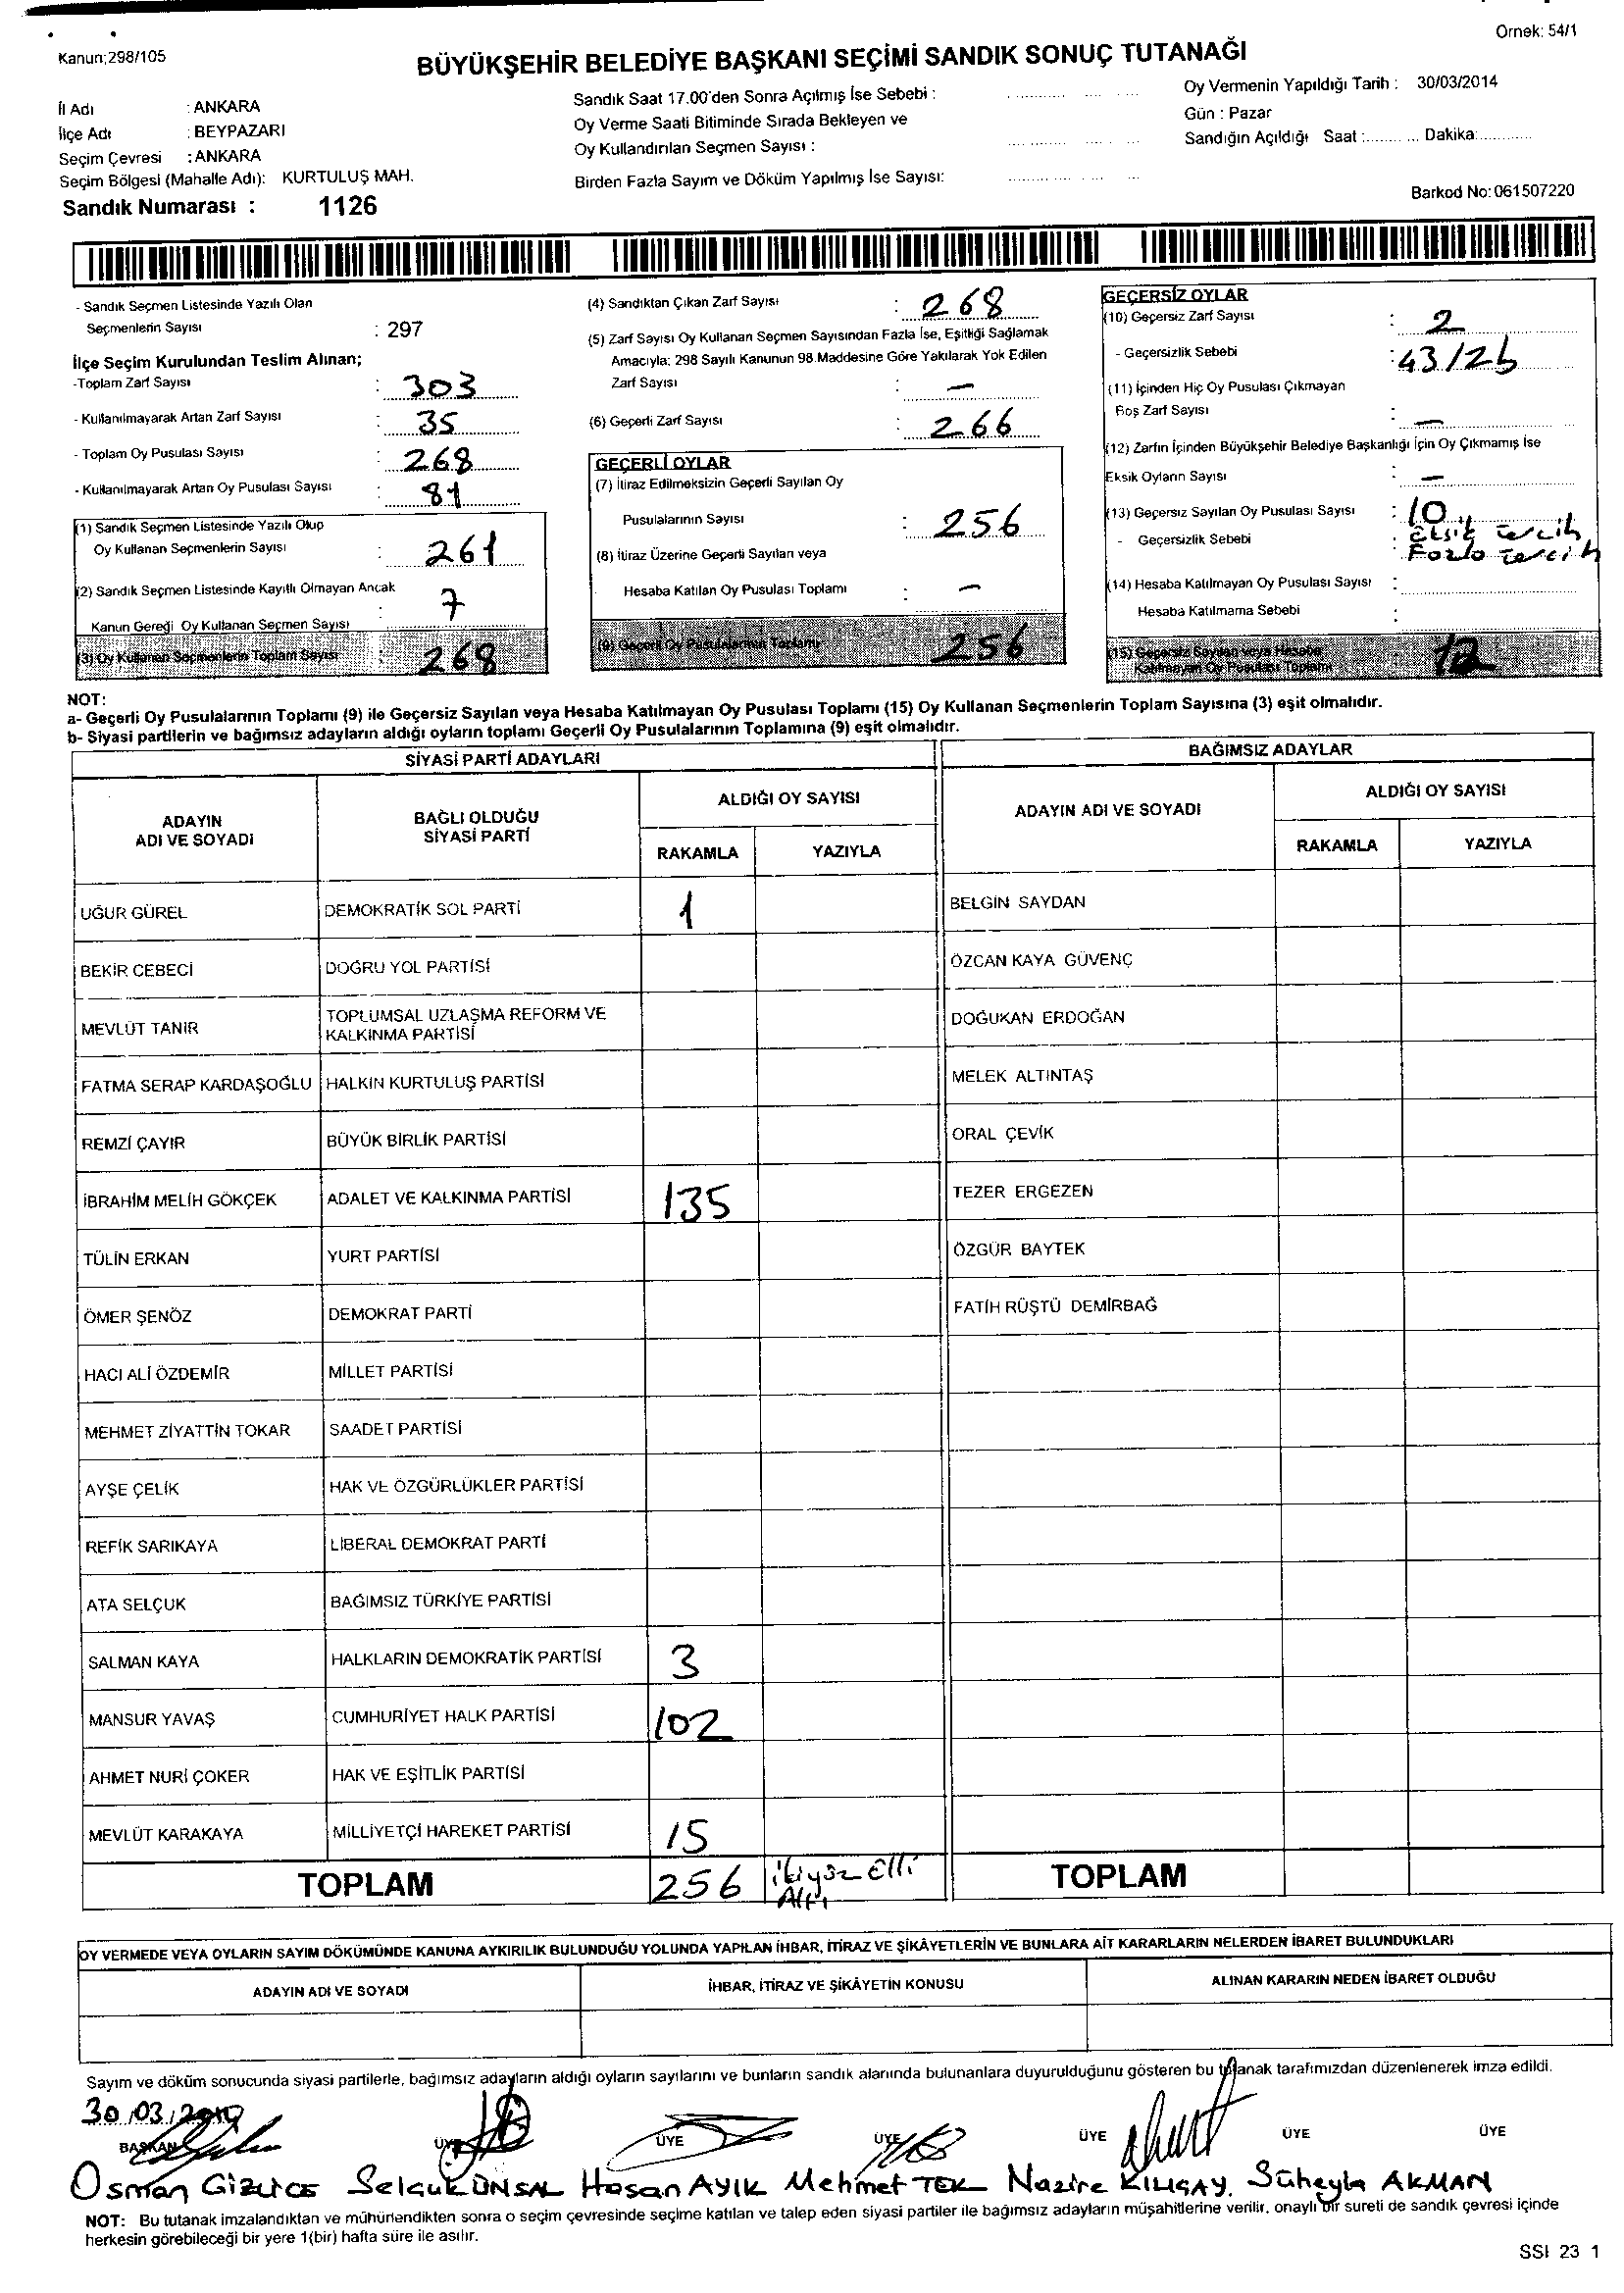 Örnek: 54/1
Kanun;298/105
BÜYÜKŞEHİR BELEDİYE BAŞKANI SEÇİMİ SANDIK SONUÇ TUTANAĞI
İl Adı : ANKARA
İlçe Adı : BEYPAZARI
Seçim Çevresi : ANKARA
Seçim Bölgesi (Mahalle Adı): KURTULUŞ MAH.
Sandık Numarası : 1126
Sandık Saat 17.00'den Sonra Açılmış İse Sebebi :
Oy Verme Saati Bitiminde Sırada Bekleyen ve
Oy Kullandırılan Seçmen Sayısı :
Birden Fazla Sayım ve Döküm Yapılmış İse Sayısı:
Oy Vermenin Yapıldığı Tarih : 30/03/2014
Gün : Pazar
Sandığın Açıldığı Saat :........ ... Dakika:............
Barkod No: 061507220
- Sandık Seçmen Listesinde Yazılı Olan
Seçmenlerin Sayısı : 297
İlçe Seçim Kurulundan Teslim Alınan;
-Toplam Zarf Sayısı : 303
- Kullanılmayarak Artan Zarf Sayısı : 35
- Toplam Oy Pusulası Sayısı : 268
- Kullanılmayarak Artan Oy Pusulası Sayısı : 81
(1) Sandık Seçmen Listesinde Yazılı Olup
Oy Kullanan Seçmenlerin Sayısı : 261
(2) Sandık Seçmen Listesinde Kayıtlı Olmayan Ancak
Kanun Gereği Oy Kullanan Seçmen Sayısı : 7
(3) Oy Kullanan Seçmenlerin Toplam Sayısı : 268
(4) Sandıktan Çıkan Zarf Sayısı : 268
(5) Zarf Sayısı Oy Kullanan Seçmen Sayısından Fazla İse, Eşitliği Sağlamak
Amacıyla; 298 Sayılı Kanunun 98.Maddesine Göre Yakılarak Yok Edilen
Zarf Sayısı : —
(6) Geçerli Zarf Sayısı : 266
GEÇERLİ OYLAR
(7) İtiraz Edilmeksizin Geçerli Sayılan Oy
Pusulalarının Sayısı : 256
(8) İtiraz Üzerine Geçerli Sayılan veya
Hesaba Katılan Oy Pusulası Toplamı : —
(9) Geçerli Oy Pusulalarının Toplamı 256
GEÇERSİZ OYLAR
(10) Geçersiz Zarf Sayısı : 2
- Geçersizlik Sebebi : 43/2b
(11) İçinden Hiç Oy Pusulası Çıkmayan
Boş Zarf Sayısı : —
(12) Zarfın İçinden Büyükşehir Belediye Başkanlığı İçin Oy Çıkmamış İse
Eksik Oyların Sayısı : —
(13) Geçersiz Sayılan Oy Pusulası Sayısı : 10
- Geçersizlik Sebebi : Eksik tercih
Fazla tercih
(14) Hesaba Katılmayan Oy Pusulası Sayısı :
Hesaba Katılmama Sebebi :
(15) Geçersiz Sayılan veya Hesaba
Katılmayan Oy Pusulası Toplamı : 12
NOT:
a- Geçerli Oy Pusulalarının Toplamı (9) ile Geçersiz Sayılan veya Hesaba Katılmayan Oy Pusulası Toplamı (15) Oy Kullanan Seçmenlerin Toplam Sayısına (3) eşit olmalıdır.
b- Siyasi partilerin ve bağımsız adayların aldığı oyların toplamı Geçerli Oy Pusulalarının Toplamına (9) eşit olmalıdır.
SİYASİ PARTİ ADAYLARI BAĞIMSIZ ADAYLAR
ADAYIN
ADI VE SOYADI
BAĞLI OLDUĞU
SİYASİ PARTİ
ALDIĞI OY SAYISI
RAKAMLA YAZIYLA
ADAYIN ADI VE SOYADI
ALDIĞI OY SAYISI
RAKAMLA YAZIYLA
UĞUR GÜREL DEMOKRATİK SOL PARTİ 1 BELGİN SAYDAN
BEKİR CEBECİ DOĞRU YOL PARTİSİ ÖZCAN KAYA GÜVENÇ
MEVLÜT TANIR TOPLUMSAL UZLAŞMA REFORM VE
KALKINMA PARTİSİ DOĞUKAN ERDOĞAN
FATMA SERAP KARDAŞOĞLU HALKIN KURTULUŞ PARTİSİ MELEK ALTINTAŞ
REMZİ ÇAYIR BÜYÜK BİRLİK PARTİSİ ORAL ÇEVİK
İBRAHİM MELİH GÖKÇEK ADALET VE KALKINMA PARTİSİ 135 TEZER ERGEZEN
TÜLİN ERKAN YURT PARTİSİ ÖZGÜR BAYTEK
ÖMER ŞENÖZ DEMOKRAT PARTİ FATİH RÜŞTÜ DEMİRBAĞ
HACI ALİ ÖZDEMİR MİLLET PARTİSİ
MEHMET ZİYATTİN TOKAR SAADET PARTİSİ
AYŞE ÇELİK HAK VE ÖZGÜRLÜKLER PARTİSİ
REFİK SARIKAYA LİBERAL DEMOKRAT PARTİ
ATA SELÇUK BAĞIMSIZ TÜRKİYE PARTİSİ
SALMAN KAYA HALKLARIN DEMOKRATİK PARTİSİ 3
MANSUR YAVAŞ CUMHURİYET HALK PARTİSİ 102
AHMET NURİ ÇOKER HAK VE EŞİTLİK PARTİSİ
MEVLÜT KARAKAYA MİLLİYETÇİ HAREKET PARTİSİ 15
TOPLAM 256 ikiyüz Elli
Altı TOPLAM
OY VERMEDE VEYA OYLARIN SAYIM DÖKÜMÜNDE KANUNA AYKIRILIK BULUNDUĞU YOLUNDA YAPILAN İHBAR, İTİRAZ VE ŞİKÂYETLERİN VE BUNLARA AİT KARARLARIN NELERDEN İBARET BULUNDUKLARI
ADAYIN ADI VE SOYADI İHBAR, İTİRAZ VE ŞİKÂYETİN KONUSU ALINAN KARARIN NEDEN İBARET OLDUĞU
Sayım ve döküm sonucunda siyasi partilerle, bağımsız adayların aldığı oyların sayılarını ve bunların sandık alanında bulunanlara duyurulduğunu gösteren bu tutanak tarafımızdan düzenlenerek imza edildi.
30/03/
BAŞKAN ÜYE ÜYE ÜYE ÜYE ÜYE ÜYE
Osman Selçuk ÜNSAL Hasan AYIK Mehmet TEK Nazire KILIÇAY. Süheyla AKMAN
NOT: Bu tutanak imzalandıktan ve mühürlendikten sonra o seçim çevresinde seçime katılan ve talep eden siyasi partiler ile bağımsız adayların müşahitlerine verilir, onaylı bir sureti de sandık çevresi içinde
herkesin görebileceği bir yere 1(bir) hafta süre ile asılır.
SSI 23 1